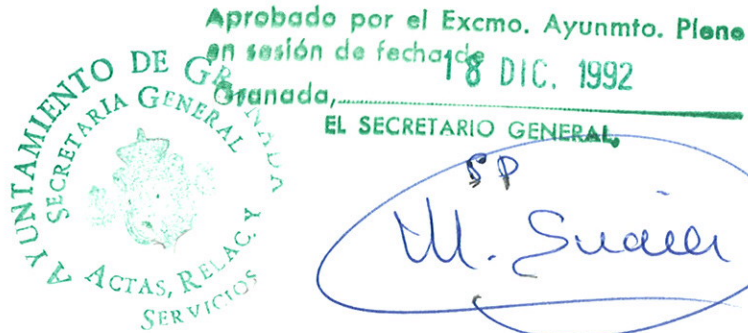 Aprobado por el Excmo. Ayunmto. Pleno
en sesión de fecha de
18 DIC. 1992
Granada,
EL SECRETARIO GENERAL,
SP
AYUNTAMIENTO DE GRANADA
SECRETARIA GENERAL
ACTAS, RELAC. Y
SERVICIOS